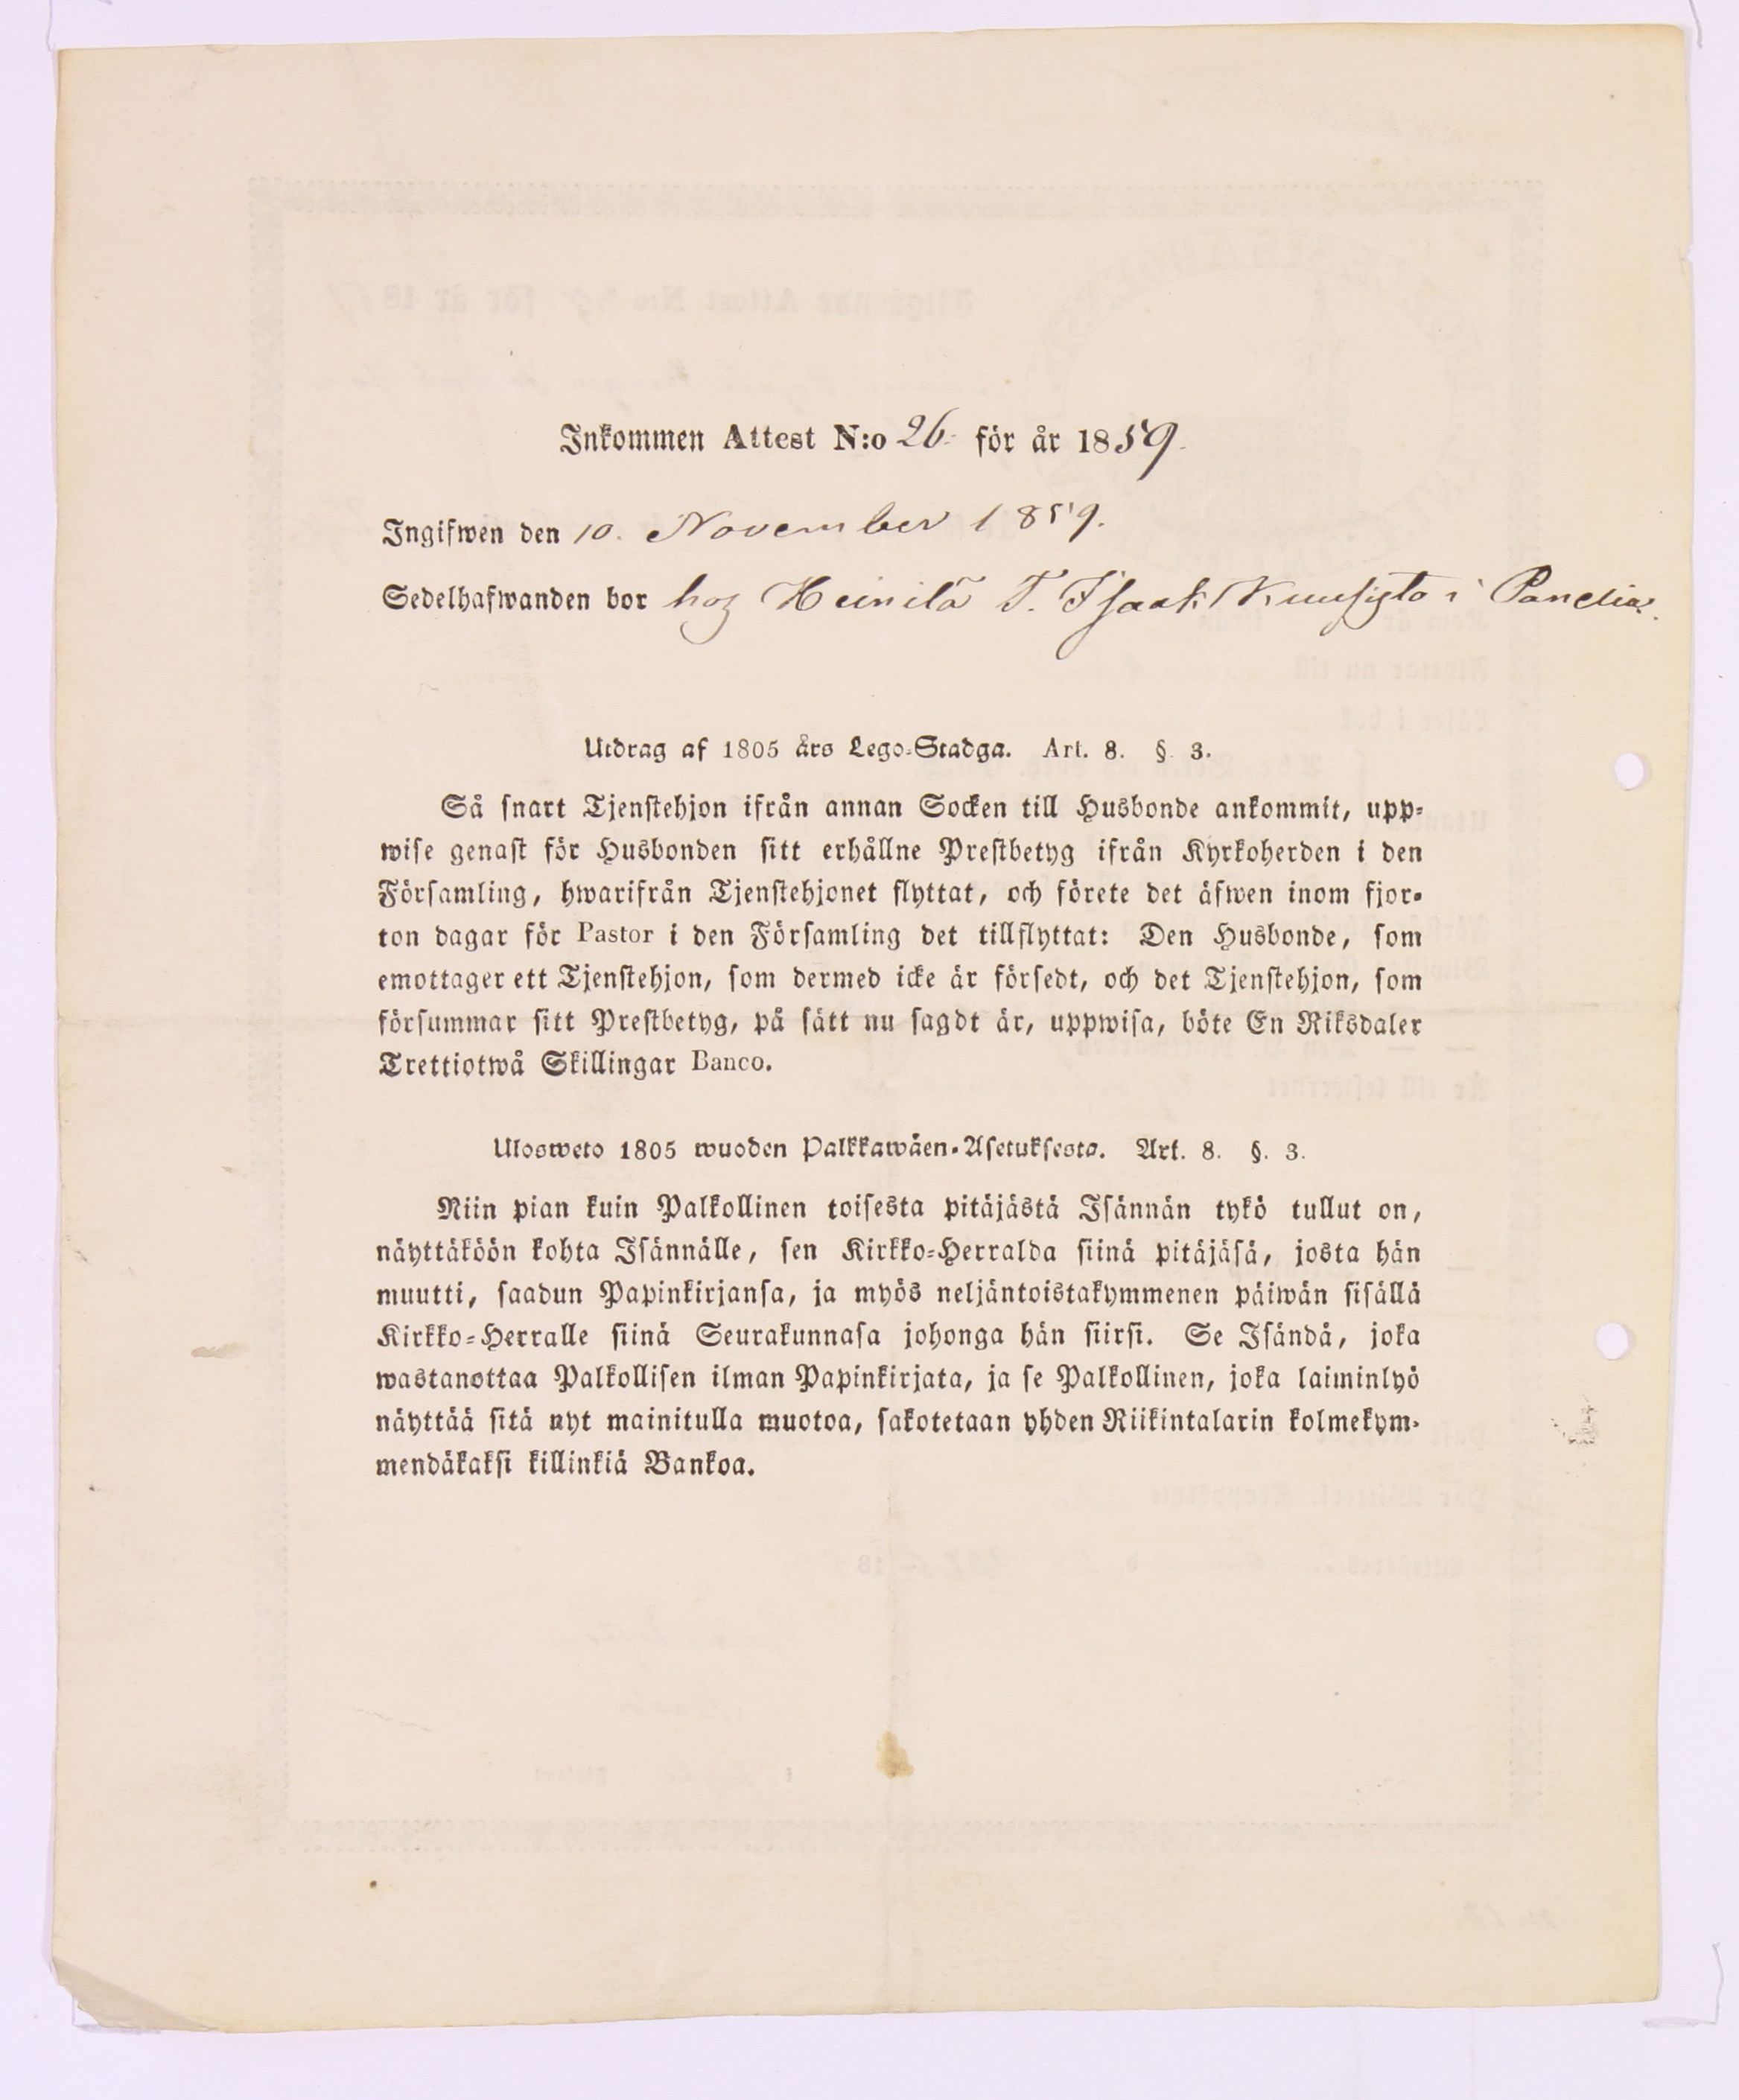 Inkommen Attest N:o 26 för år 1859.
Ingifwen den 10. November 1859.
Sedelhafwanden bor hoz Heinilä T. Isaak Kuusisto i Panelia.
Utdrag af 1805 års Lego-Stadga. Art. 8. §. 3.
Så snart Tjenstehjon ifrån annan Socken till Husbonde ankommit, upp-
wise genast för Husbonden sitt erhållne Prestbetyg ifrån Kyrkoherden i den
Församling, hwarifrån Tjenstehjonet flyttat, och förete det äfwen inom fjor-
ton dagar för Pastor i den Församling det tillflyttat: Den Husbonde, som
emottager ett Tjenstehjon, som dermed icke är försedt, och det Tjenstehjon, som
försummar sitt Prestbetyg, på sätt nu sagdt är, uppwisa, böte En Riksdaler
Trettiotwå Skillingar Banco.
Ulosweto 1805 wuoden Palkkawäen-Asetuksesta. Art. 8. §. 3.
Niin pian kuin Palkollinen toisesta pitäjästä Isännän tykö tullut on,
näyttäköön kohta Isännälle, sen Kirkko-Herralda siinä pitäjäsä, josta hän
muutti, saadun Papinkirjansa, ja myös neljäntoistakymmenen päiwän sisällä
Kirkko-Herralle siinä Seurakunnasa johonga hän siirsi. Se Isändä, joka
wastanottaa Palkollisen ilman Papinkirjata, ja se Palkollinen, joka laiminlyö
näyttää sitä nyt mainitulla muotoa, sakotetaan yhden Riikintalarin kolmekym-
mendäkaksi killinkiä Bankoa.